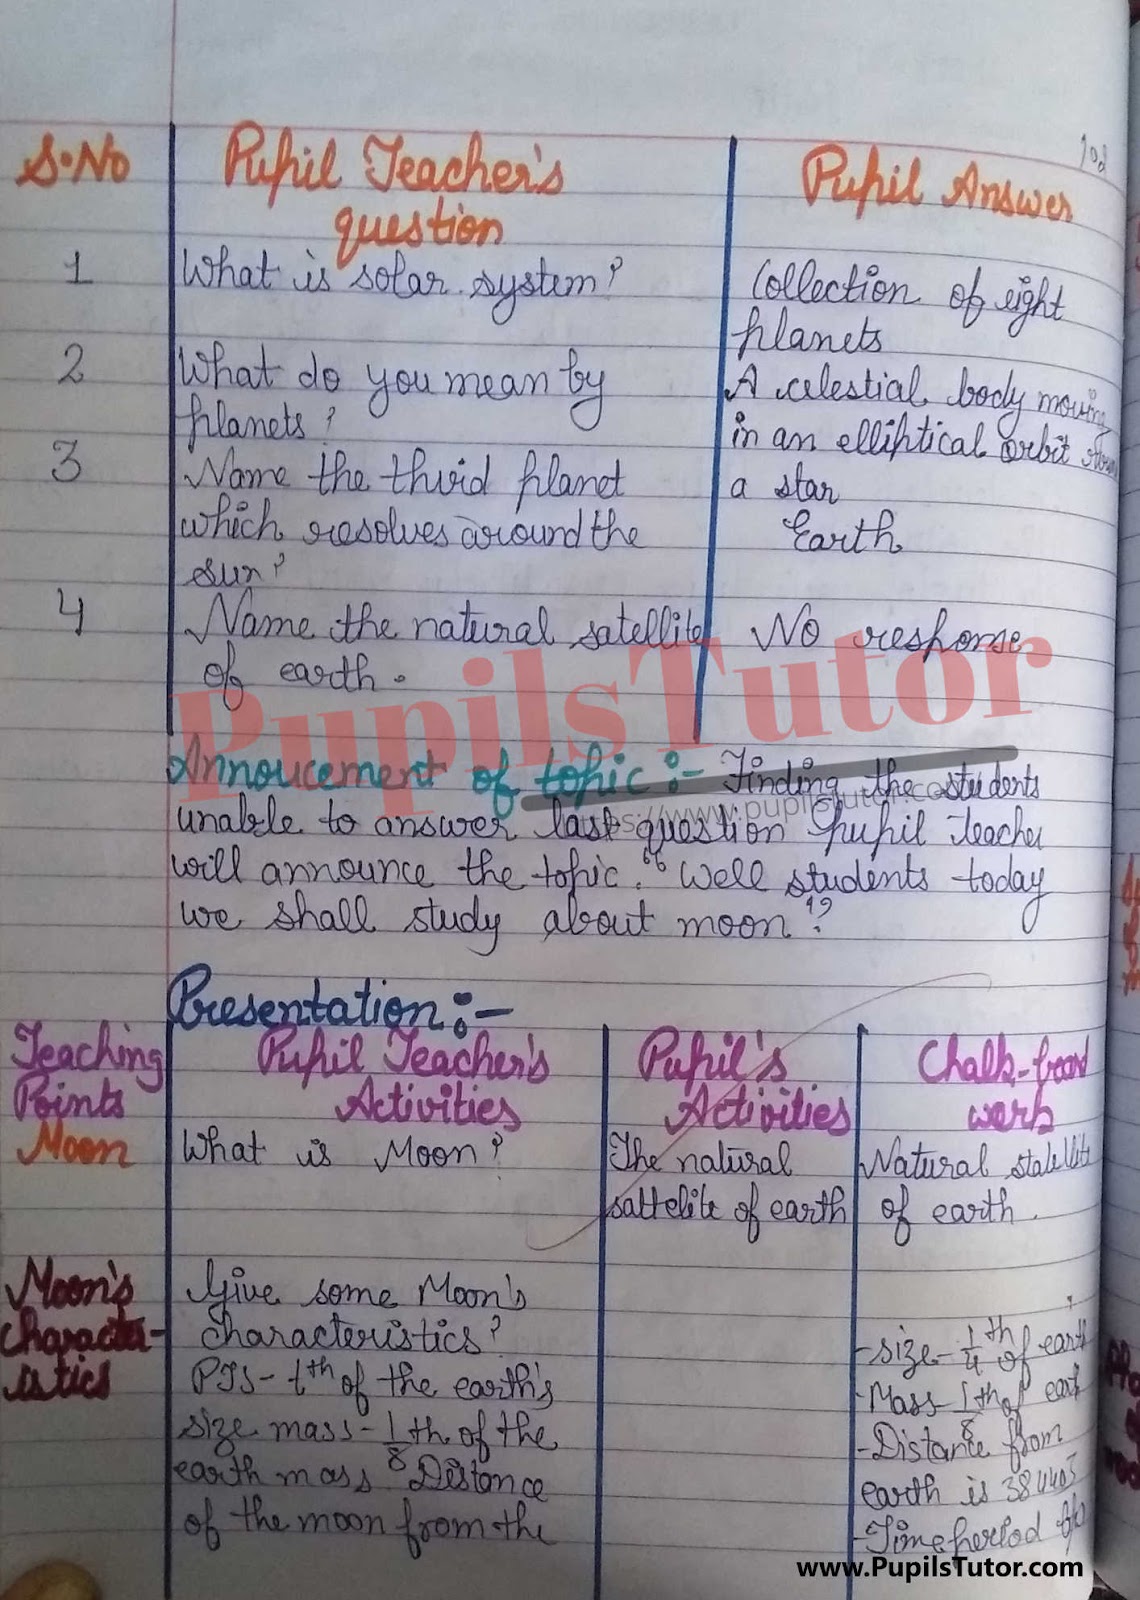 S.No Pupil Teacher's Pupil Answer
question
1 What is solar system? Collection of eight
planets
2 What do you mean by A celestial body moving
planets? in an elliptical orbit
3 Name the thrid planet a star
which resolves around the Earth
sun?
4 Name the natural satellite No response
of earth.
PupilsTutor
Annoucement of topic :- Finding the students
unable to answer last question pupil teacher
will announce the topic. "Well students today
we shall study about moon"?
Presentation :-
Teaching Pupil Teacher's Pupil's Chalk-board
Points Activities Activities work
Moon What is Moon? The natural Natural statellite
sattelite of earth of earth.
Moon's Give some Moon's
Character- characteristics? -size - 1/4 th of earth
istics PTS - th of the earth's -Mass - 1/8 th of earth
size mass - 1/8 th of the -Distance from
earth mass Distance earth is 384403
of the moon from the -Time period
www.PupilsTutor.com